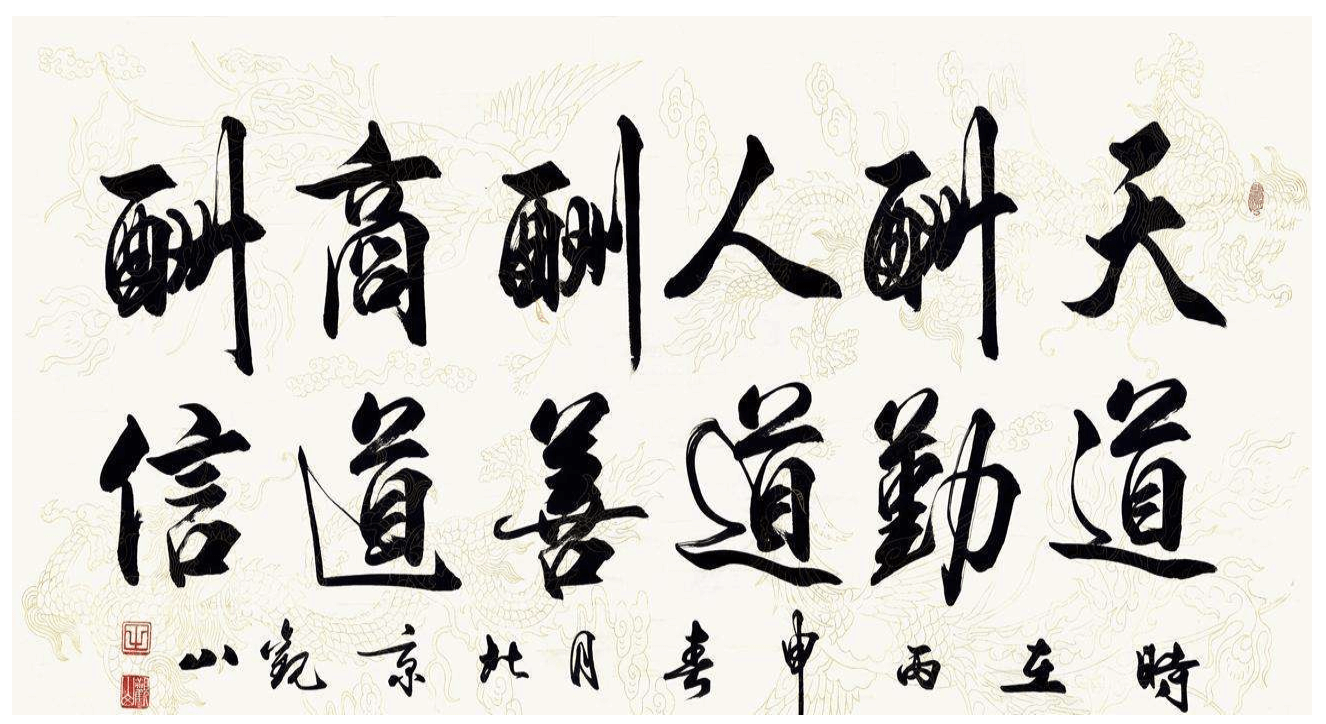 天道酬勤
人道酬善
商道酬信
時在丙申春月北京觀山